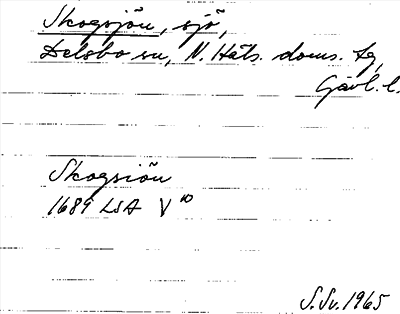 Skogsjön, sjö,
Delsbo sn, N. Häls. doms. tg,
Gävl. l.
Skogsiön
1689 LSA V 10
S.Sv. 1965